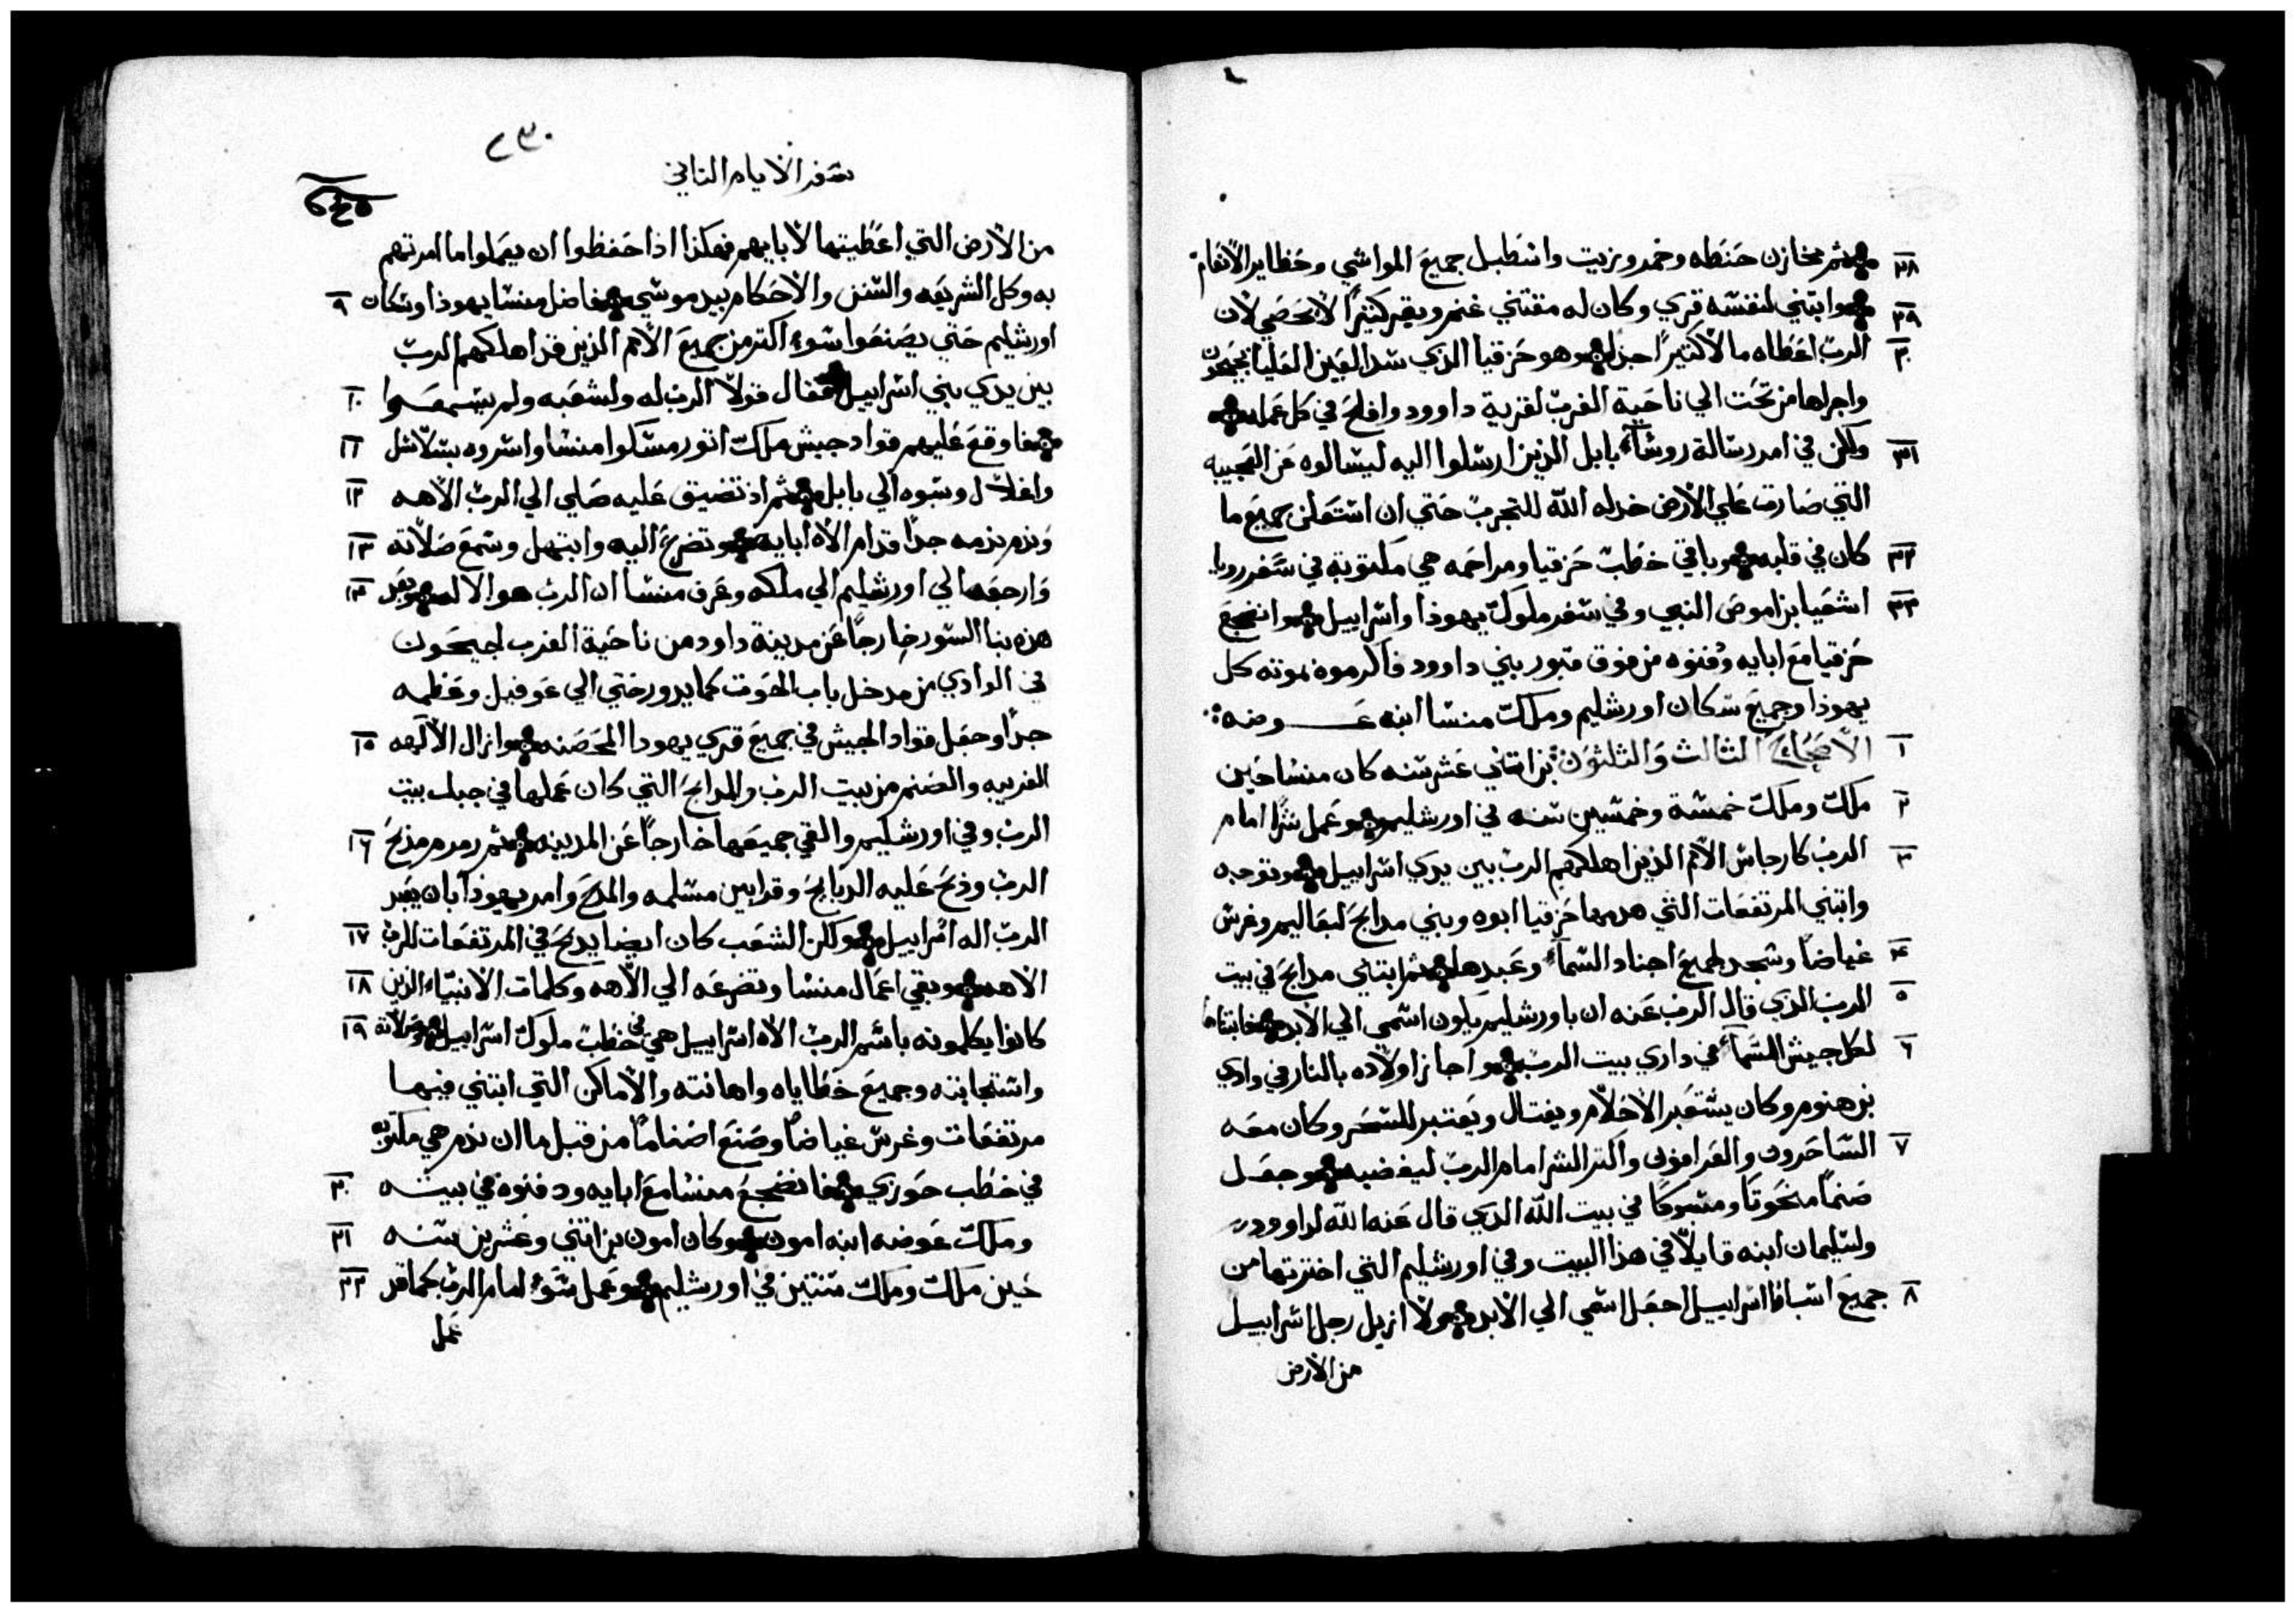 ٢٨ ثم مخازن حنطه وخمر وزيت واسطبل جميع المواشي وحظاير الأنعام
٢٩ وابتني لنفسه قري وكان له مقتني غنم وبقر كثيرًا لا يحصي لان
٣٠ الرب اعطاه مالا كثيرًا جدا وهو حزقيا الذي سد العين العليا بجيحون
واجراها من تحت الي ناحية الغرب لقرية داوود وافلح في كل عمله
٣١ ولكن في امر رسالة روساء بابل الذين ارسلوا اليه ليسالوه عن العجيبه
التي صارت علي الأرض خدله الله للتجرب حتي ان استعلن جميع ما
٣٢ كان في قلبه وباقي خطب حزقيا ومراحمه هي مكتوبة في سفر رويا
٣٣ اشعيا بن اموص النبي وفي سفر ملوك يهوذا واسراييل وانضجع
حزقيا مع ابايه ودفنوه من فوق قبور بني داوود فاكرموه بموته كل
يهوذا وجميع سكان اورشليم وملك منسا ابنه عوضه
١ الأصحاح الثالث والثلثون بن اثني عشر سنه كان منسا حين
٢ ملك وملك خمسة وخمسين سنه في اورشليم وعمل شرًا امام
٣ الرب كارجاس الأمم الذين اهلكهم الرب بين يدي اسراييل وتوجه
وابتني المرتفعات التي هدمها حزقيا ابوه وبني مدابح لبعاليم وغرس
٤ غياضًا وسجد لجميع اجناد السماء وعبدها ثم ابتني مدابح في بيت
٥ الرب الذي قال الرب عنه ان باورشليم يكون اسمي الي الأبد فابتناها
٦ لكل جيش السماء في داري بيت الرب واجاز اولاده بالنار في وادي
بن هنوم وكان يستعبر الأحلام ويفتال ويعتبر للسحر وكان معه
٧ الساحرون والعرافون واكثر الشر امام الرب ليغضبه وجعل
صنمًا منحوتًا ومسبوكًا في بيت الله الذي قال عنه الله لداوود
ولسليمان ابنه قايلًا في هذا البيت وفي اورشليم التي اخترتها من
٨ جميع اسباط اسراييل اجعل اسمي الي الأبد ولا ازيل رجل اسراييل
من الأرض
٢٣٠
سفر الأيام الثاني
من الأرض التي اعطيتها لأبايهم فهكذا اذا حفظوا ان يعملوا ما امرتهم
٩ به وكل الشريعه والسنن والأحكام بيد موسي فاضل منسا يهوذا وسكان
اورشليم حتي يصنعوا سوء اكتر من جميع الأمم الذين قد اهلكهم الرب
١٠ بين يدي بني اسراييل فقال قولًا الرب له ولشعبه ولم يسمعوا
١١ فاوقع عليهم قواد جيش ملك اتور مسكوا منسا واسروه بسلاسل
١٢ واغلال وسبوه الي بابل ثم اذ تضيق عليه صلي الي الرب الأهه
١٣ وندم ندمه جدًا قدام الأه ابايه وتضرع اليه وابتهل وسمع صلاته
١٤ وارجعه الي اورشليم الي ملكه وعرف منسا ان الرب هو الاله وبعد
هذه بنا السور خارجًا عن مدينة داود من ناحية الغرب لجيحون
في الوادي من مدخل باب الحوت كما يدور حتي الي عوفيل وعظمه
١٥ جدًا وجعل قواد الجيش في جميع قري يهودا المحصنه وازال الألهه
الغريبه والصنم من بيت الرب والمدابح التي كان عملها في جبل بيت
١٦ الرب وفي اورشليم والقي جميعها خارجًا عن المدينه ثم رمرم مذبح
الرب وذبح عليه الدبايح وقرابين مسلمه والمدح وامر يهوذا بان يعبد
١٧ الرب اله اسراييل ولكن الشعب كان ايضا يدبح في المرتفعات للرب
١٨ الاهه وبقي اعمال منسا وتضرعه الي الأهه وكلمات الأنبياء الذين
١٩ كانوا يكلمونه باسم الرب الأه اسراييل هي في خطب ملوك اسراييل وصلاته
واستجابته وجميع خطاياه واهانته والأماكن التي ابتني فيها
مرتفعات وغرس غياضًا وصنع اصنامًا من قبل ما ان ندم هي مكتوبه
٢٠ في خطب حوزي فانضجع منسا مع ابايه ودفنوه في بيته
٢١ وملك عوضه ابنه امون وكان امون بن اثني وعشرين سنه
٢٢ حين ملك وملك سنتين في اورشليم وعمل سوء امام الرب كما قد
عمل